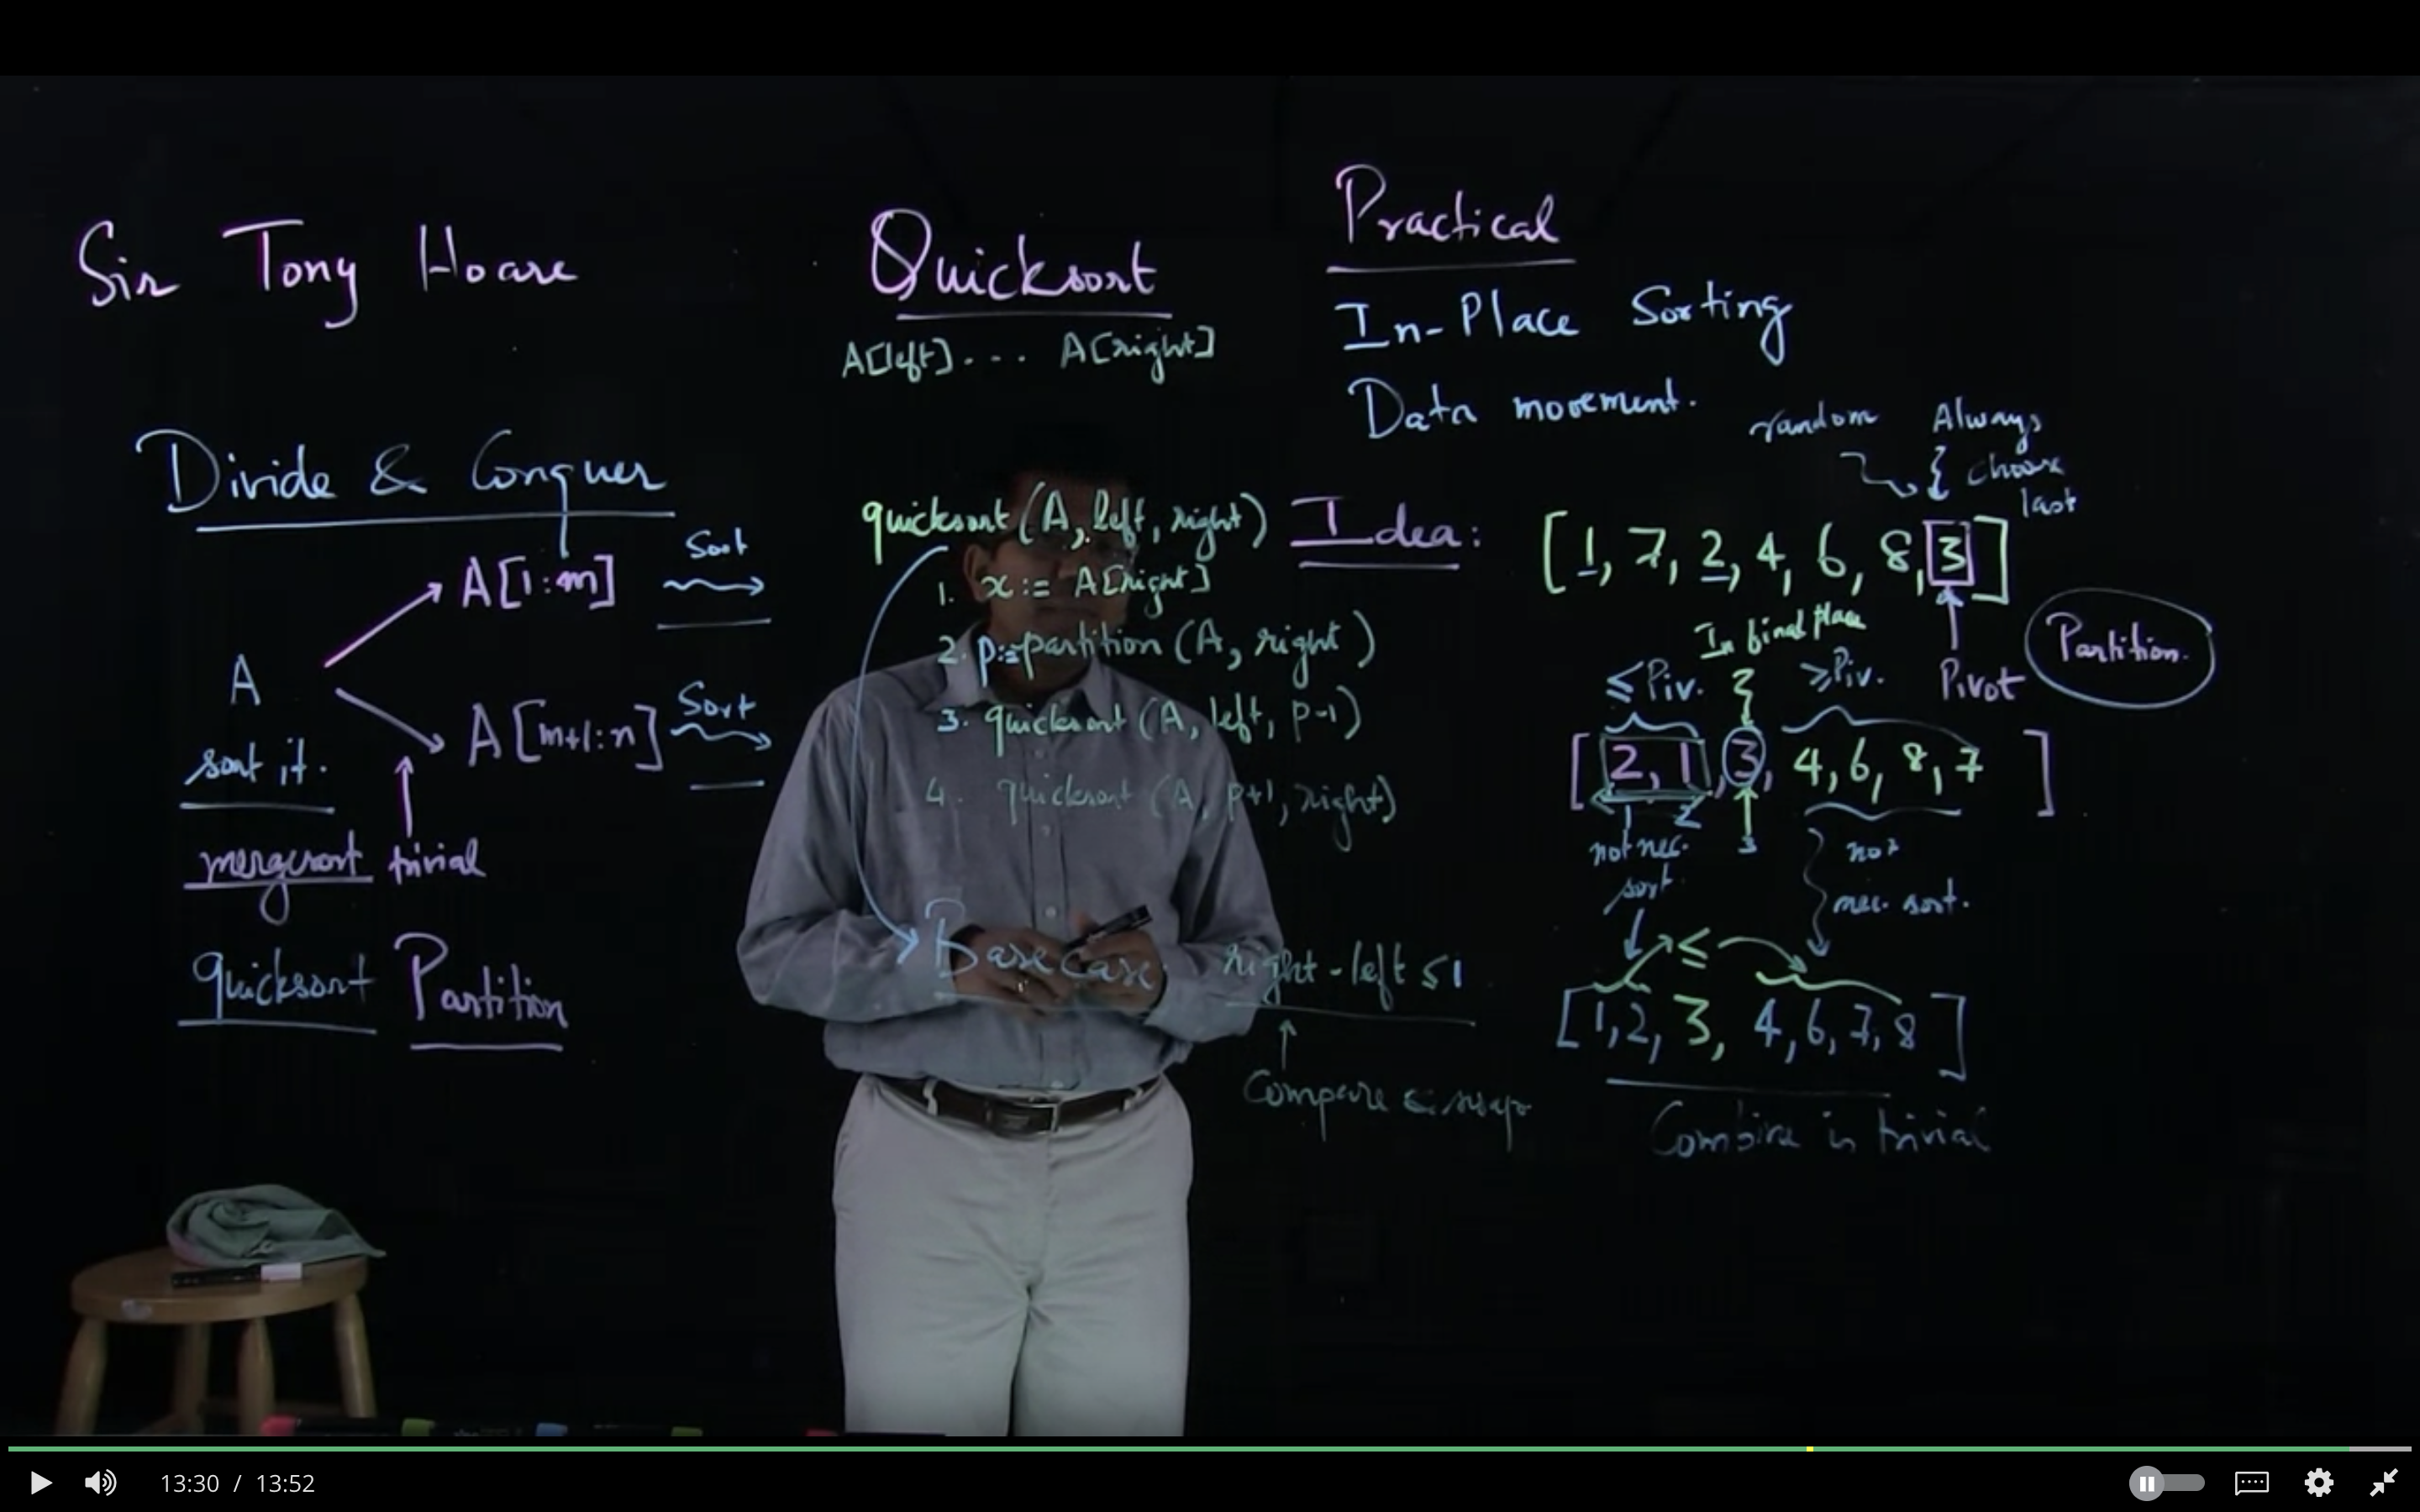 Sir Tony Hoare
Divide & Conquer
A[1:m]
Sort
A
sort it.
A[m+1:n]
Sort
mergesort trivial
quicksort Partition
Quicksort
A[left]... A[right]
quicksort (A, left, right)
1. x := A[right]
2. p:=partition (A, right )
3. quicksort (A, left, p-1)
4. quicksort (A, p+1, right)
Base case right - left ≤1
Compare & swap
Practical
In-Place Sorting
Data movement.
random
Always
choose
last
Idea:
[1, 7, 2, 4, 6, 8, 3]
Pivot
Partition.
In final place
≤Piv.
≥Piv.
[2, 1, 3, 4, 6, 8, 7 ]
1 2
3
not nec.
sort.
not
nec. sort.
≤
[1,2, 3, 4, 6, 7, 8]
Combine is trivial
13:30 / 13:52